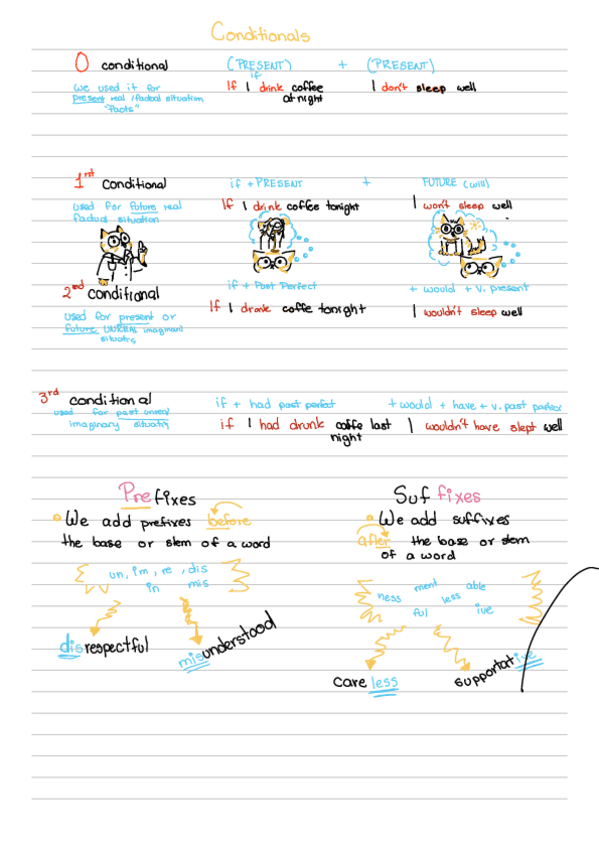 Conditionals
0 conditional (PRESENT) + (PRESENT)
if
we used it for If I drink coffee I don't sleep well
present real / factual situation at night
"facts"
1st conditional if + PRESENT + FUTURE (will)
used for future real If I drink coffee tonight I won't sleep well
factual situation
2nd conditional if + Past Perfect + would + v. present
used for present or If I drank coffe tonight I wouldn't sleep well
future UNREAL imaginari
3rd conditional if + had past perfect + would + have + v. past perfect
used for past unreal if I had drunk coffe last I wouldn't have slept well
imaginary night
Prefixes Suffixes
We add prefixes before We add suffixes
the base or stem of a word after the base or stem
of a word
un, im, re, dis ment able
in mis ness less
ful ive
disrespectful misunderstood
careless supportative